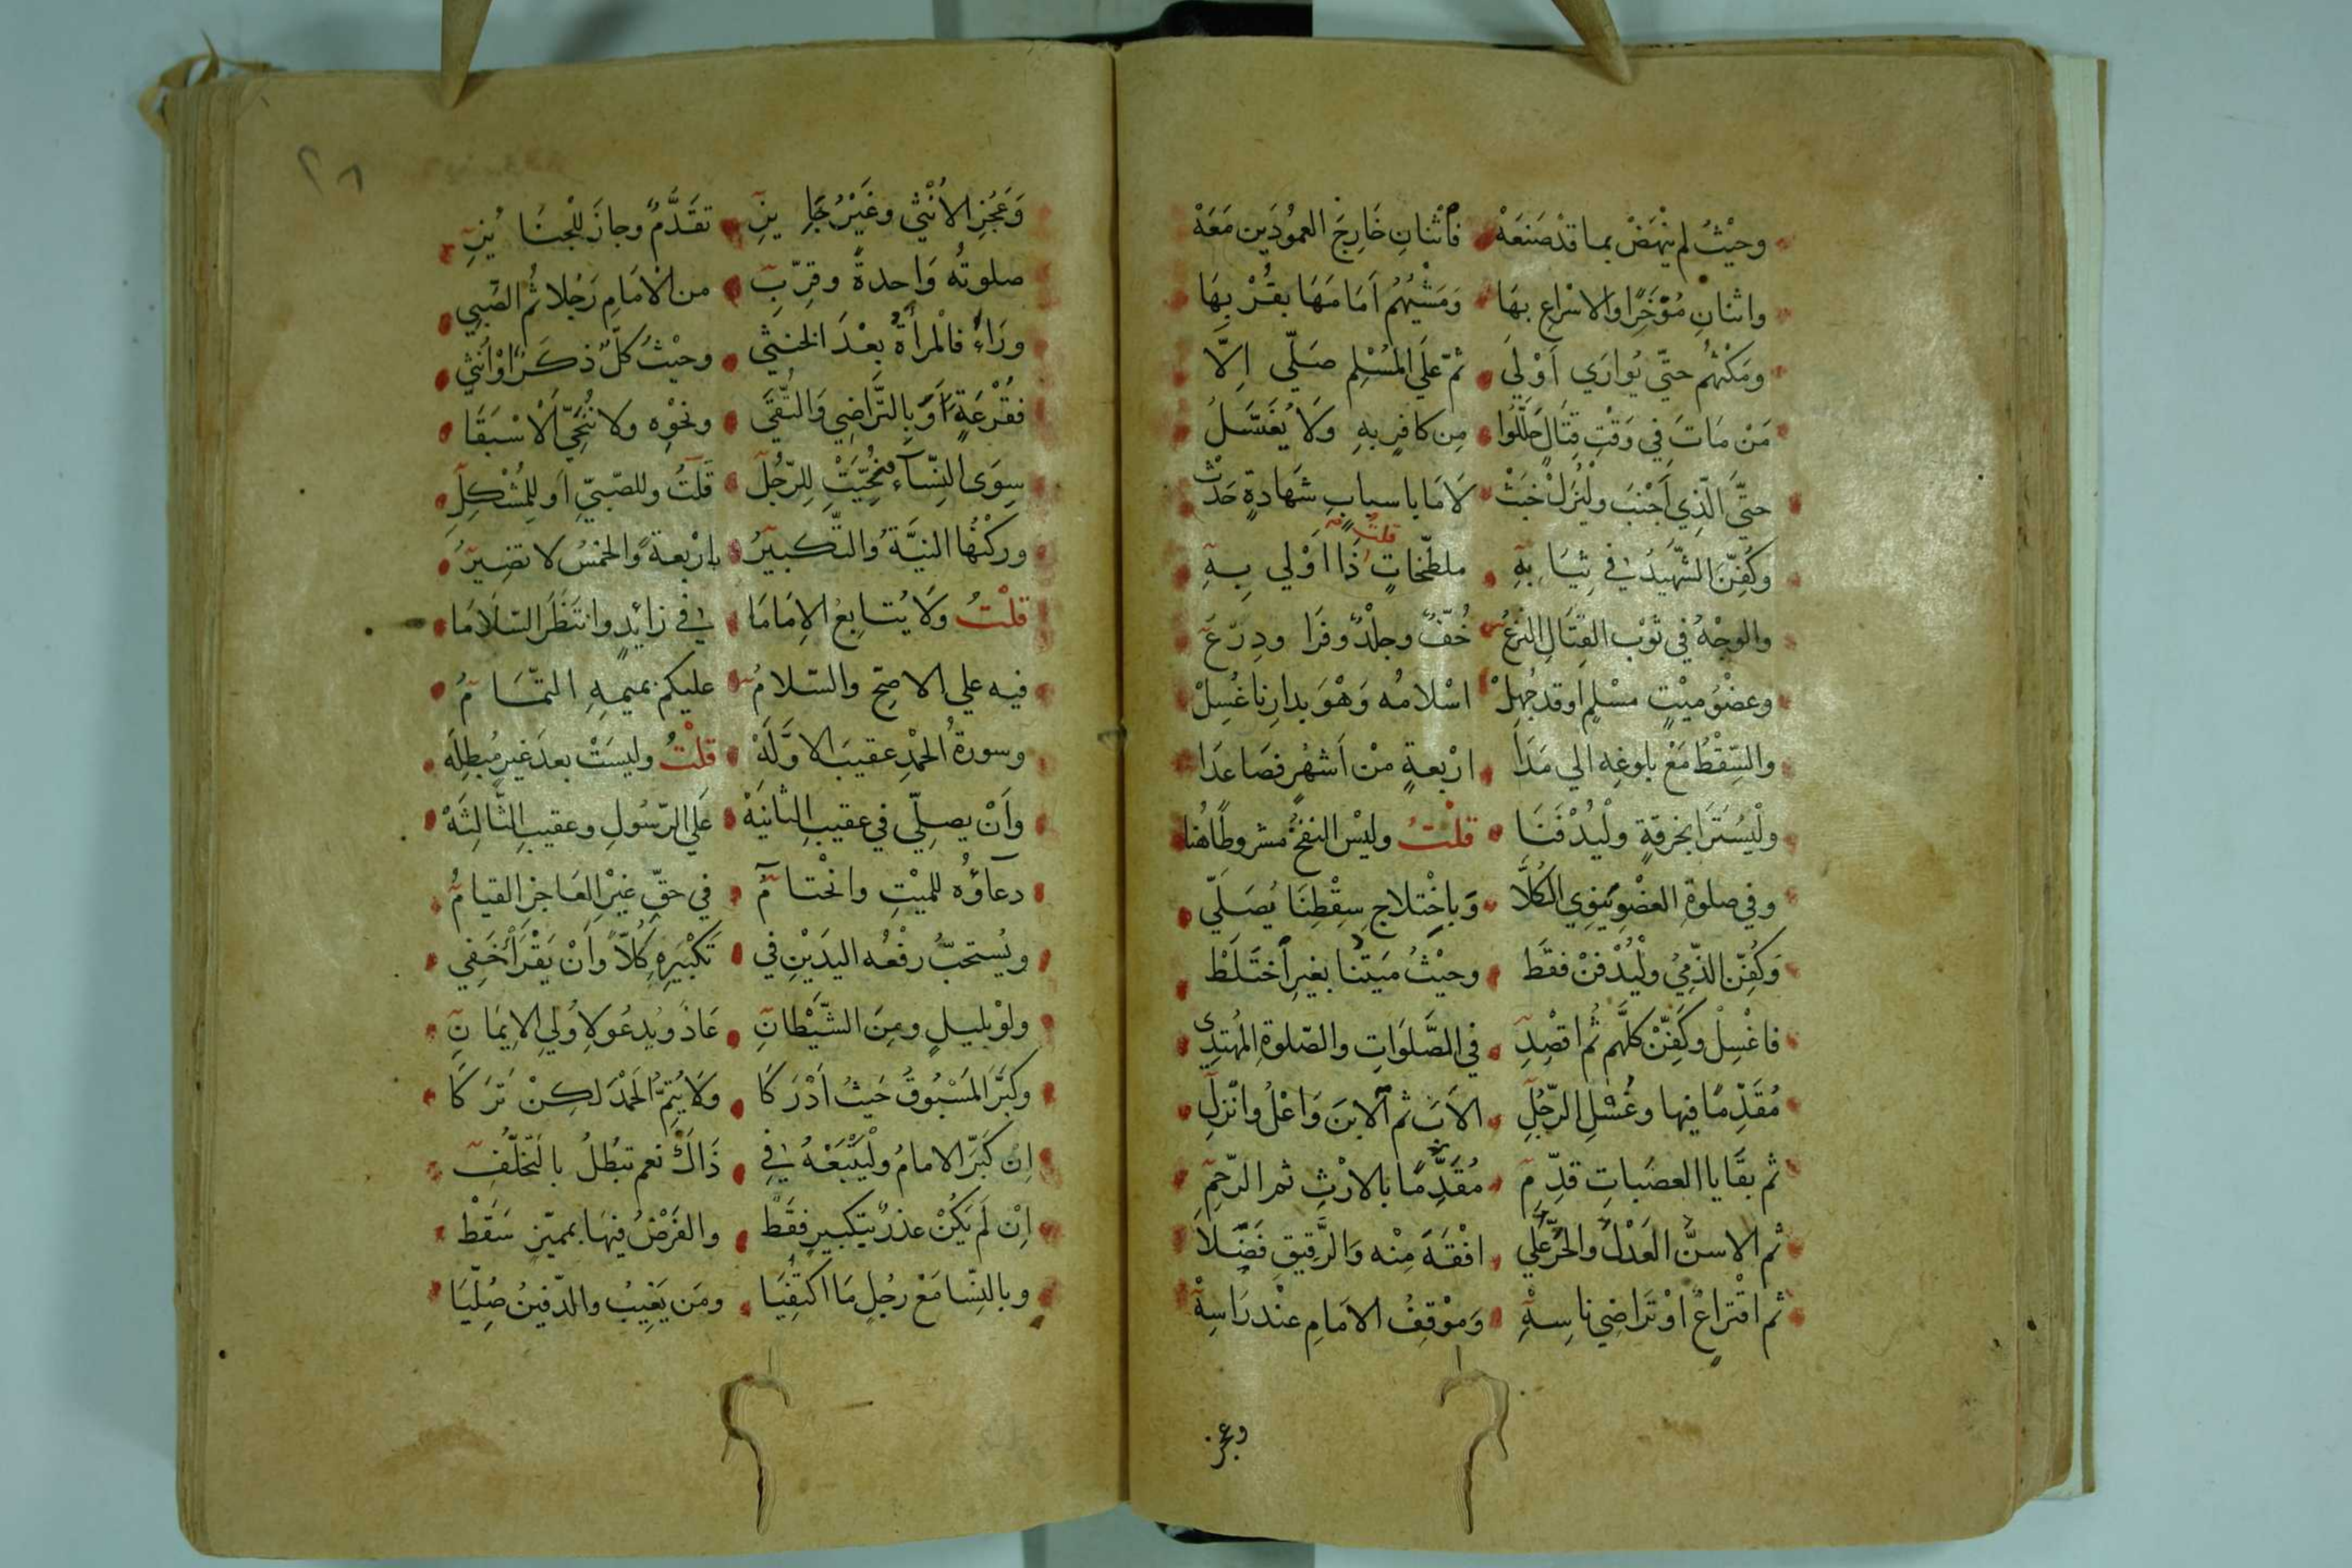 وحَيْثُ لم يَنْهَضْ بما قدْ صَنَعَهْ فَاثْنانِ خَارِجَ العمُودَين مَعَهْ
واثنانِ مُؤَخِّرًا والاسْراع بهَا وَمَشْيُهُمْ اَمَامَهَا بقُرْبِهَا
ومَكْثُهُمْ حتّى يُوارَي اَوْلَي ثمّ عَلَي المُسْلِمِ صَلّي اِلَّا
مَنْ مَاتَ فِي وَقْتِ قِتَالٍ حَلَّلُوا مِن كافرٍ بهِ وَلَا يُغَسَّلُ
حتَّي الّذِي اَجْنَبَ ولْيُزَلْ خَبَثْ لَامَا باسبابِ شَهادةٍ حَدَثْ
وكُفِّنَ الشّهيدُ في ثِيَابِهِ ملطّخاتٍ قلتُ ذَا اَوْلي بِهِ
والوجْهُ في ثَوْبِ القِتَالِ النزعُ خُفٌّ وجلْدٌ وفَرَا ودِرْعُ
وعضْوُ ميْتٍ مسْلمٍ اوقد جُهِلْ اسْلامُه وَهْوَ بدارِنا غُسِلْ
والسِّقْطُ مَعْ بلوغِه الي مَدَا ارْبعةٍ مْن اَشهُرٍ فصَاعدَا
ولْيُسْتَرَا بخرقةٍ ولْيُدْفَنَا قلْتُ وليْس النفخُ مشروطًا هُنا
وفي صلوةِ العضْوِ يَنوِي الكُلَّا وَباخْتلاجِ سِقْطِنَا يُصَلّي
وَكُفِّن الذّميُ ولْيُدْفنْ فقَط وحيْثُ مَيتنا بغيرٍ اختَلَطْ
فاغْسِلْ وكَفِّنْ كلَّهم ثُم اقْصِدِ في الصَّلَوَاتِ والصّلوةِ المُهتدِي
مُقَدِّمًا فيها وغُسْلِ الرّجُلِ الاَبَ ثم الابنَ وَاعْلُ وانْزلِ
ثم بقَايا العصَباتِ قدِّمِ مُقَدِّمًا بالارْثِ ثم الرّحِمِ
ثم الاسنَّ العَدْلَ والحُرُّ علي افْقَهَ مِنْه وَالرَّقِيقِ فَضِّلَا
ثم اقْتراعٌ اوْ تَرَاضِي ناسِهِ وَمَوْقِفُ الامَامِ عنْد رَاسِهْ
وعجز
٢٨
وَعَجُزِ الاُنْثي وغَيْرُ جَايِزِ تقَدُّمٌ وجازَ للْجنَايُزِ
صلوتُه وَاحدةً وقرِّبِ من الاَمَامِ رَجُلا ثُم الصّبي
ورَاءُ فالْمرأةُ بعْدَ الخنثي وحيْثُ كلٌّ ذكَرًا اوْ اُنثي
فقُرْعَةٍ اَوَ بِالتَّراضِي وَالتُّقَي ونحْوِه ولا نُنَحّي الاَسْبَقَا
سِوَى النِّسَاءِ نُحِّيَتْ لِلرّجُلِ قَلْتُ وللصّبيِّ اَو للمُشْكِلِ
وركْنُها النيَّةُ والتّكبيرُ بارْبعةٍ والخمْسُ لا تضِيرُ
قلْتُ وَلَا يُتابِعُ الاِمَامَا في زائدٍ وانتَظَرَ السّلَامَا
فيه علي الاصحِّ والسّلامُ عليكم بميمِهِ التمَّامُ
وسورةُ الحمْدِ عقيبَ الاوَّلَهْ قلْتُ وليسَتْ بعدَ غيرٍ مُبطِلَه
واَنْ يصلِّي في عقيبِ الثانيَهْ عَلَي الرّسُولِ وعقيبِ الثَّالِثَهْ
دعآؤُه للميْتِ وانْحْتامٌ في حقِّ غيْرِ العَاجِزِ القيامُ
ويُستحبُّ رفْعُه اليَدَيْنِ في تَكْبيرِهِ كُلّاً وَاَنْ يَقْرَأَ خَفِي
ولوْ بليلٍ ومِنَ الشّيْطانِ عَاذَ ويُدعُو لاِوُلي الاِيمَانِ
وكبَّرَ المَسْبُوقُ حَيثُ اَدْرَكَا وَلَا يُتِمُّ الحَمْدَ لكِنْ تَرَكَا
اِن كَبَّرَ الامامُ ولْيَتْبَعْهُ في ذَاكَ نعم تبْطُلُ بالتّخلّفِ
اِنْ لَم يَكُنْ عذرٌ بتكبيرٍ فقَطْ والفَرْضُ فيهَا بمميّزٍ سَقَطْ
وبالنِّسا مَعْ رجُلٍ مَا اكتَفِيَا ومَن يَغِيبُ والدّفينُ صُلّيَا